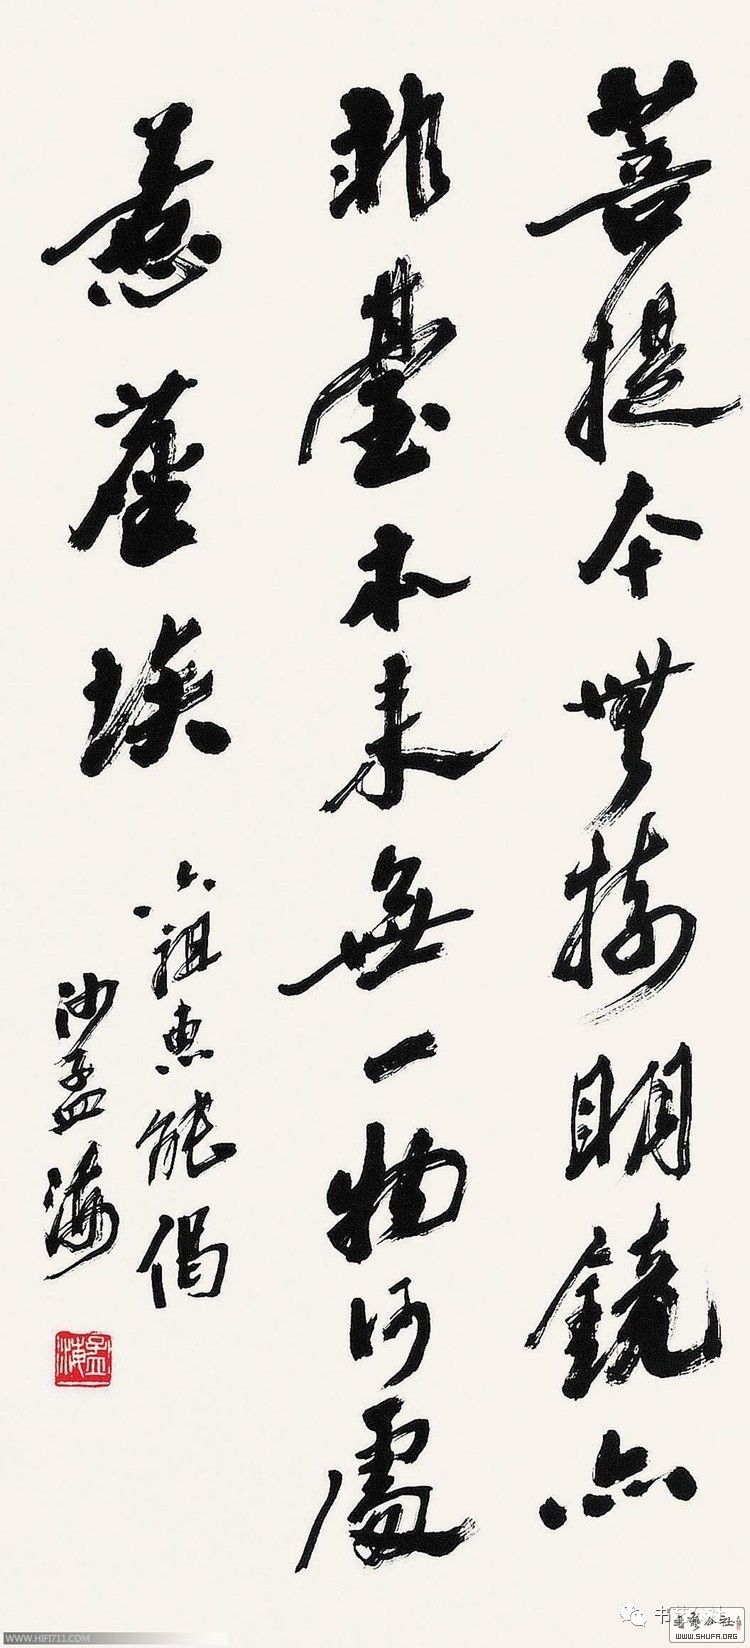 菩提本無樹明鏡亦
非臺本來無一物何處
惹塵埃
六祖惠能偈
沙孟海
孟海
WWW.HIFI711.COM
书艺公社
WWW.SHUFA.ORG